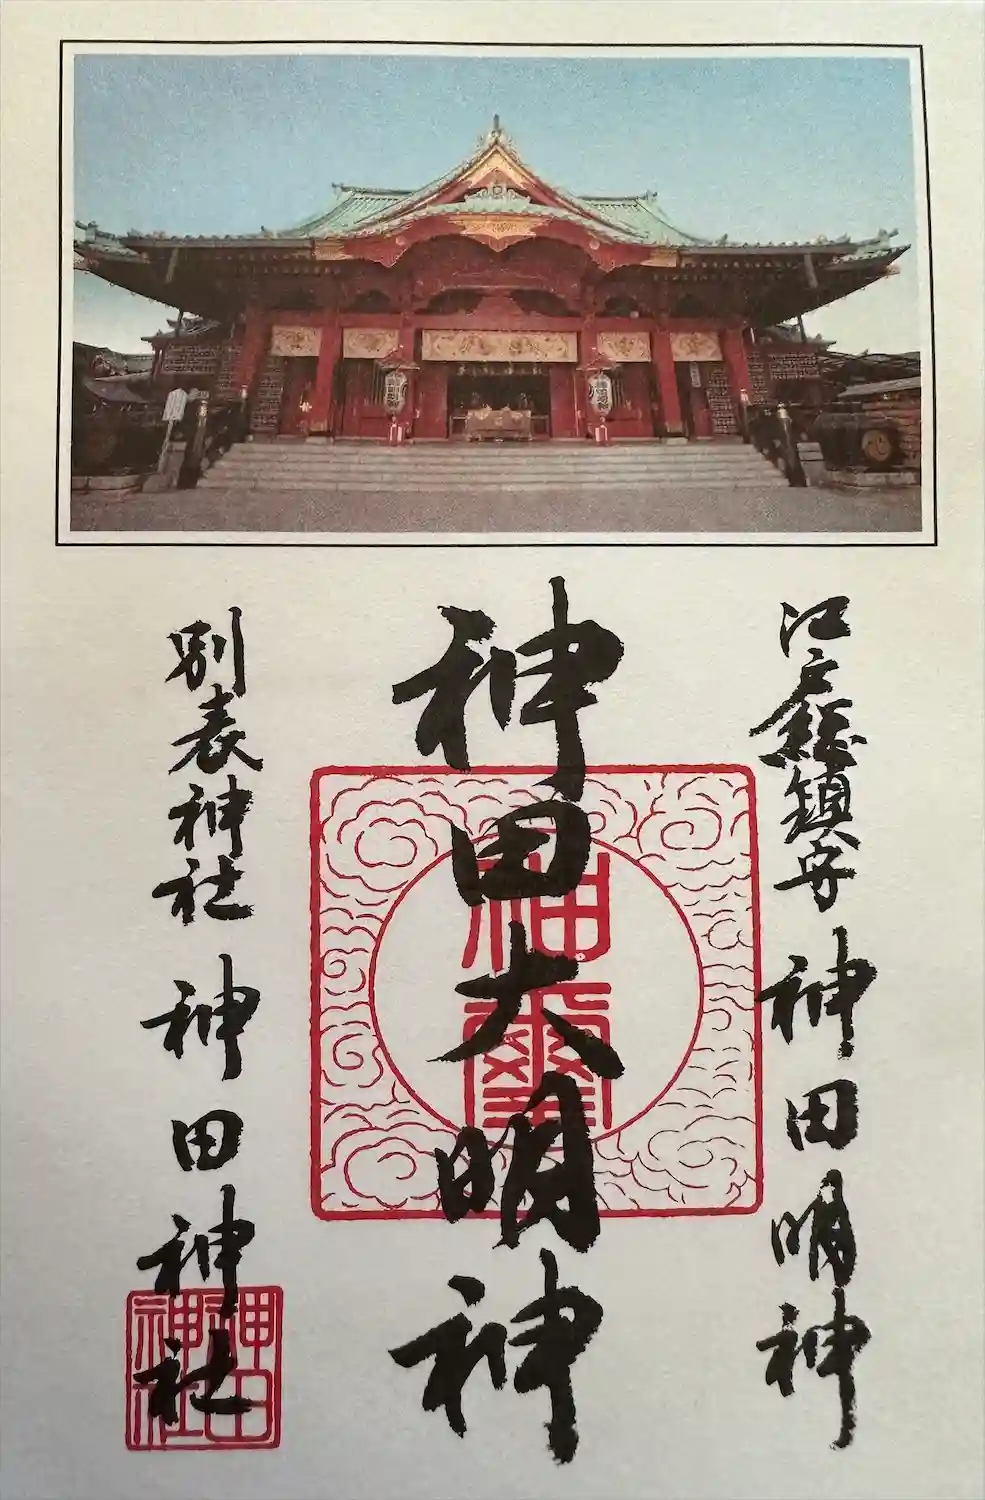 江戸總鎮守 神田明神
神田大明神
神璽
別表神社 神田神社
神田神社